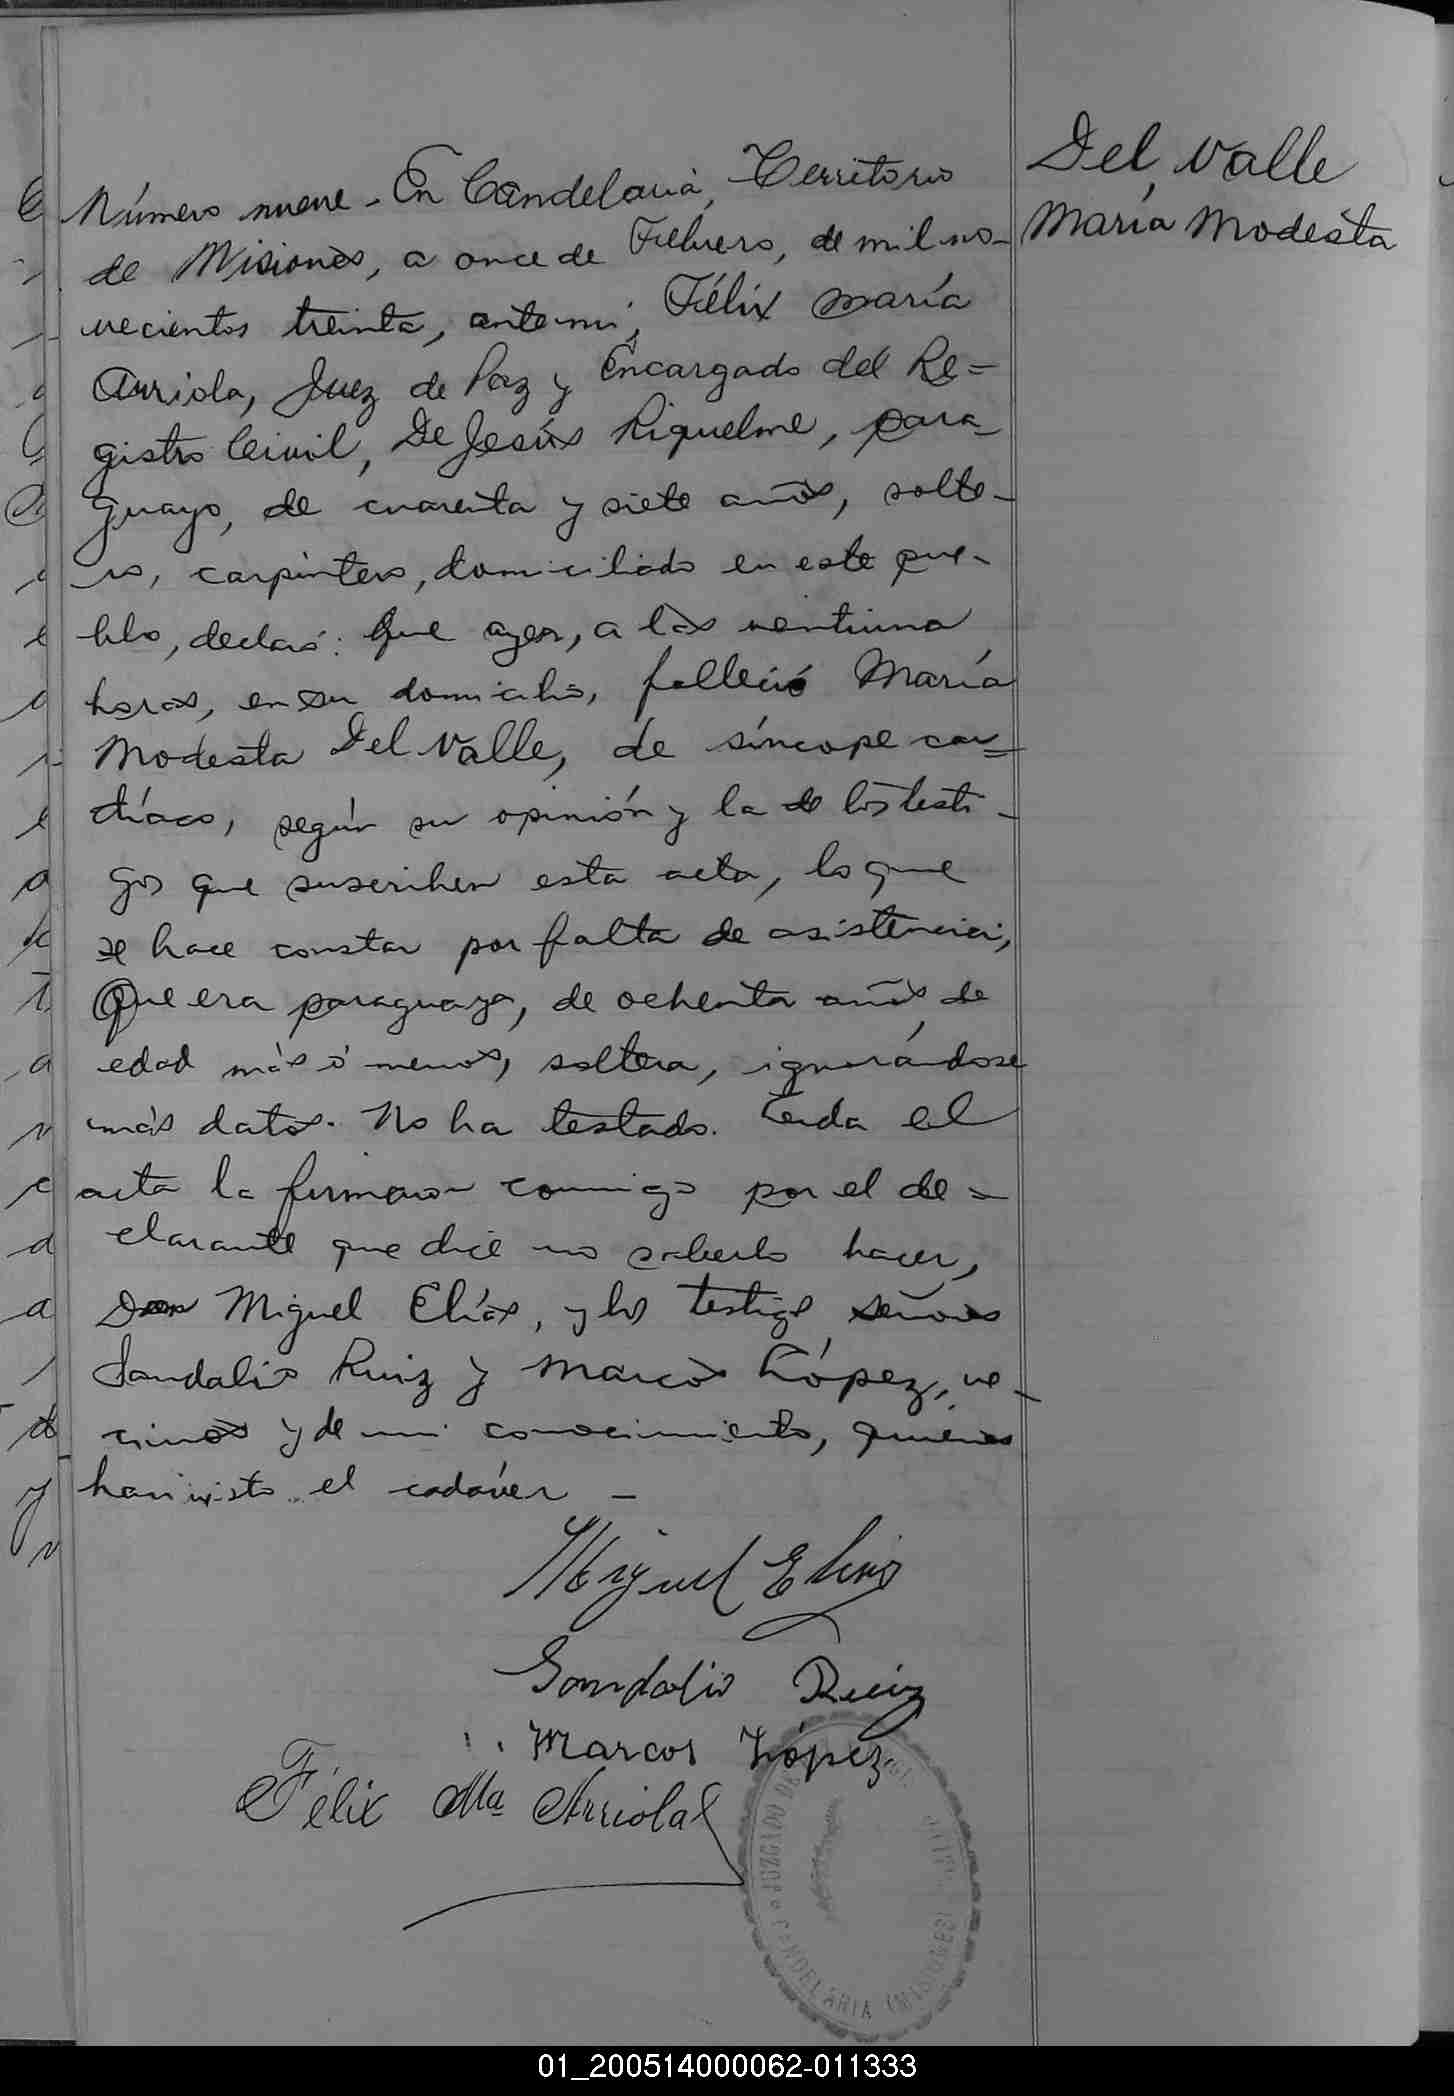 Del Valle
María Modesta
Número nueve - En Candelaria, Territorio
de Misiones, a once de Febrero, de mil no-
vecientos treinta, ante mi, Félix María
Arriola, Juez de Paz y Encargado del Re=
gistro Civil, De Jesús Riquelme, para-
guayo, de cuarenta y siete años, solte-
ro, carpintero, domiciliado en este pue-
blo, declaró: Que ayer, a las ventiuna
horas, en su domicilio, falleció María
Modesta Del Valle, de síncope car=
díaco, según su opinión y la de los testi-
gos que suscriben esta acta, lo que
se hace constar por falta de asistencia,
Que era paraguaya, de ochenta años de
edad más ó menos, soltera, ignorándose
más datos. No ha testado. Leída el
acta la firmaron conmigo por el de=
clarante que dice no saberlo hacer,
Don Miguel Elías, y los testigos, señores
Sandalio Ruiz y Marcos López, ve-
cinos y de mi conocimiento, quienes
han visto el cadáver -
Miguel Elias
Sandalio Ruiz
Marcos López
Félix Ma Arriola
JUZGADO DE
CANDELARIA (MISIONES)
01_200514000062-011333